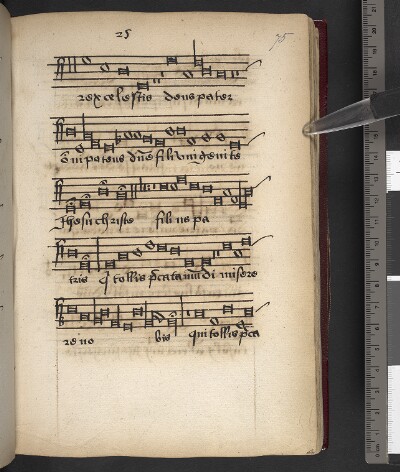 25
75
rex celestis deus pater
oīpotens dn̄e fili unigenite
Jhesu christe filius pa
tris q̄ tollis pc̄ata mūdi misere
re no bis qui tollis pc̄a